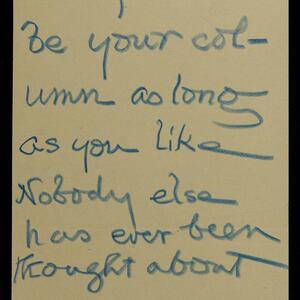 Be your col-
umn as long
as you like
Nobody else
has ever been
thought about